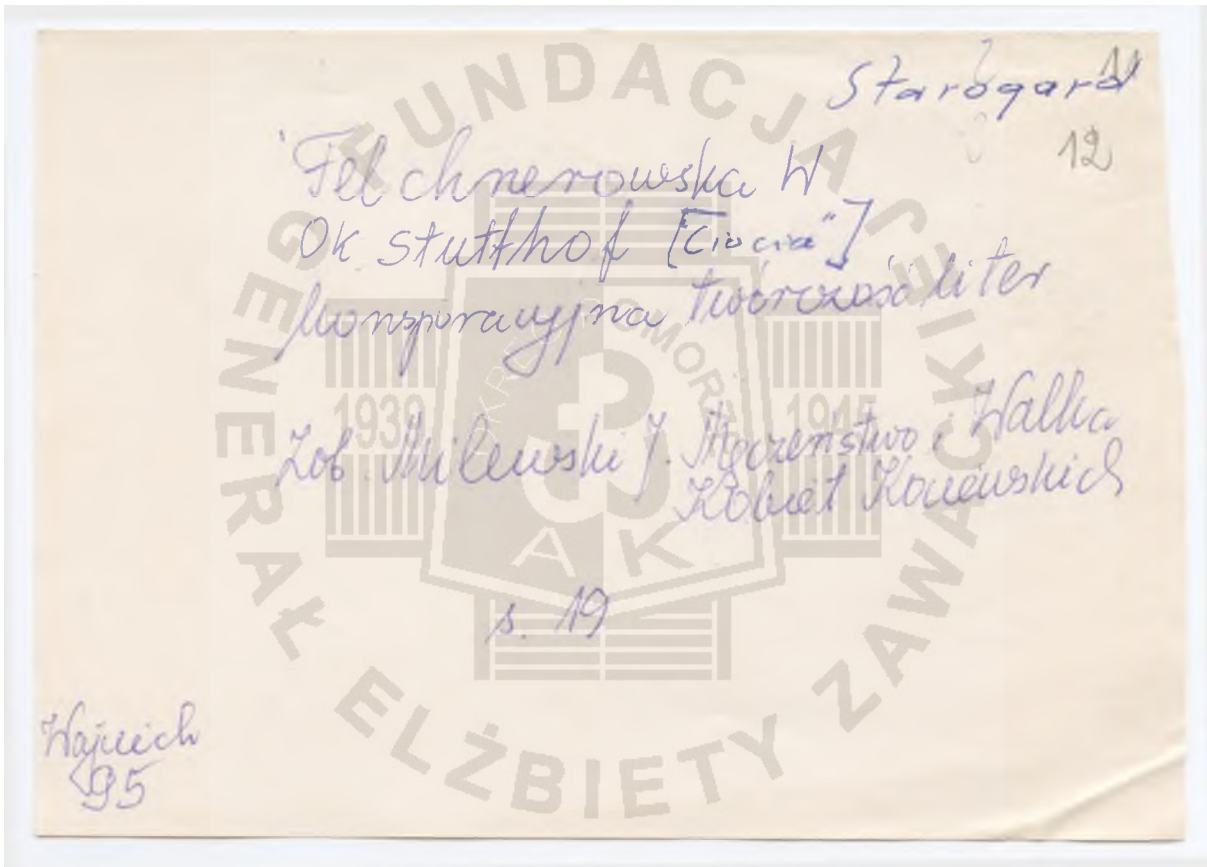 Starogard
11
12
Felchnerowska W
Ok Stutthof [Ciocia"]
konspiracyjna twórczość liter
Zob. Milewski J. Męczeństwo i Walka
Kobiet Kociewskich
s. 19
Wajciech
95
FUNDACJA GENERAŁ ELŻBIETY ZAWACKIEJ
OKRĘG POMORZE
1939 1945
AK